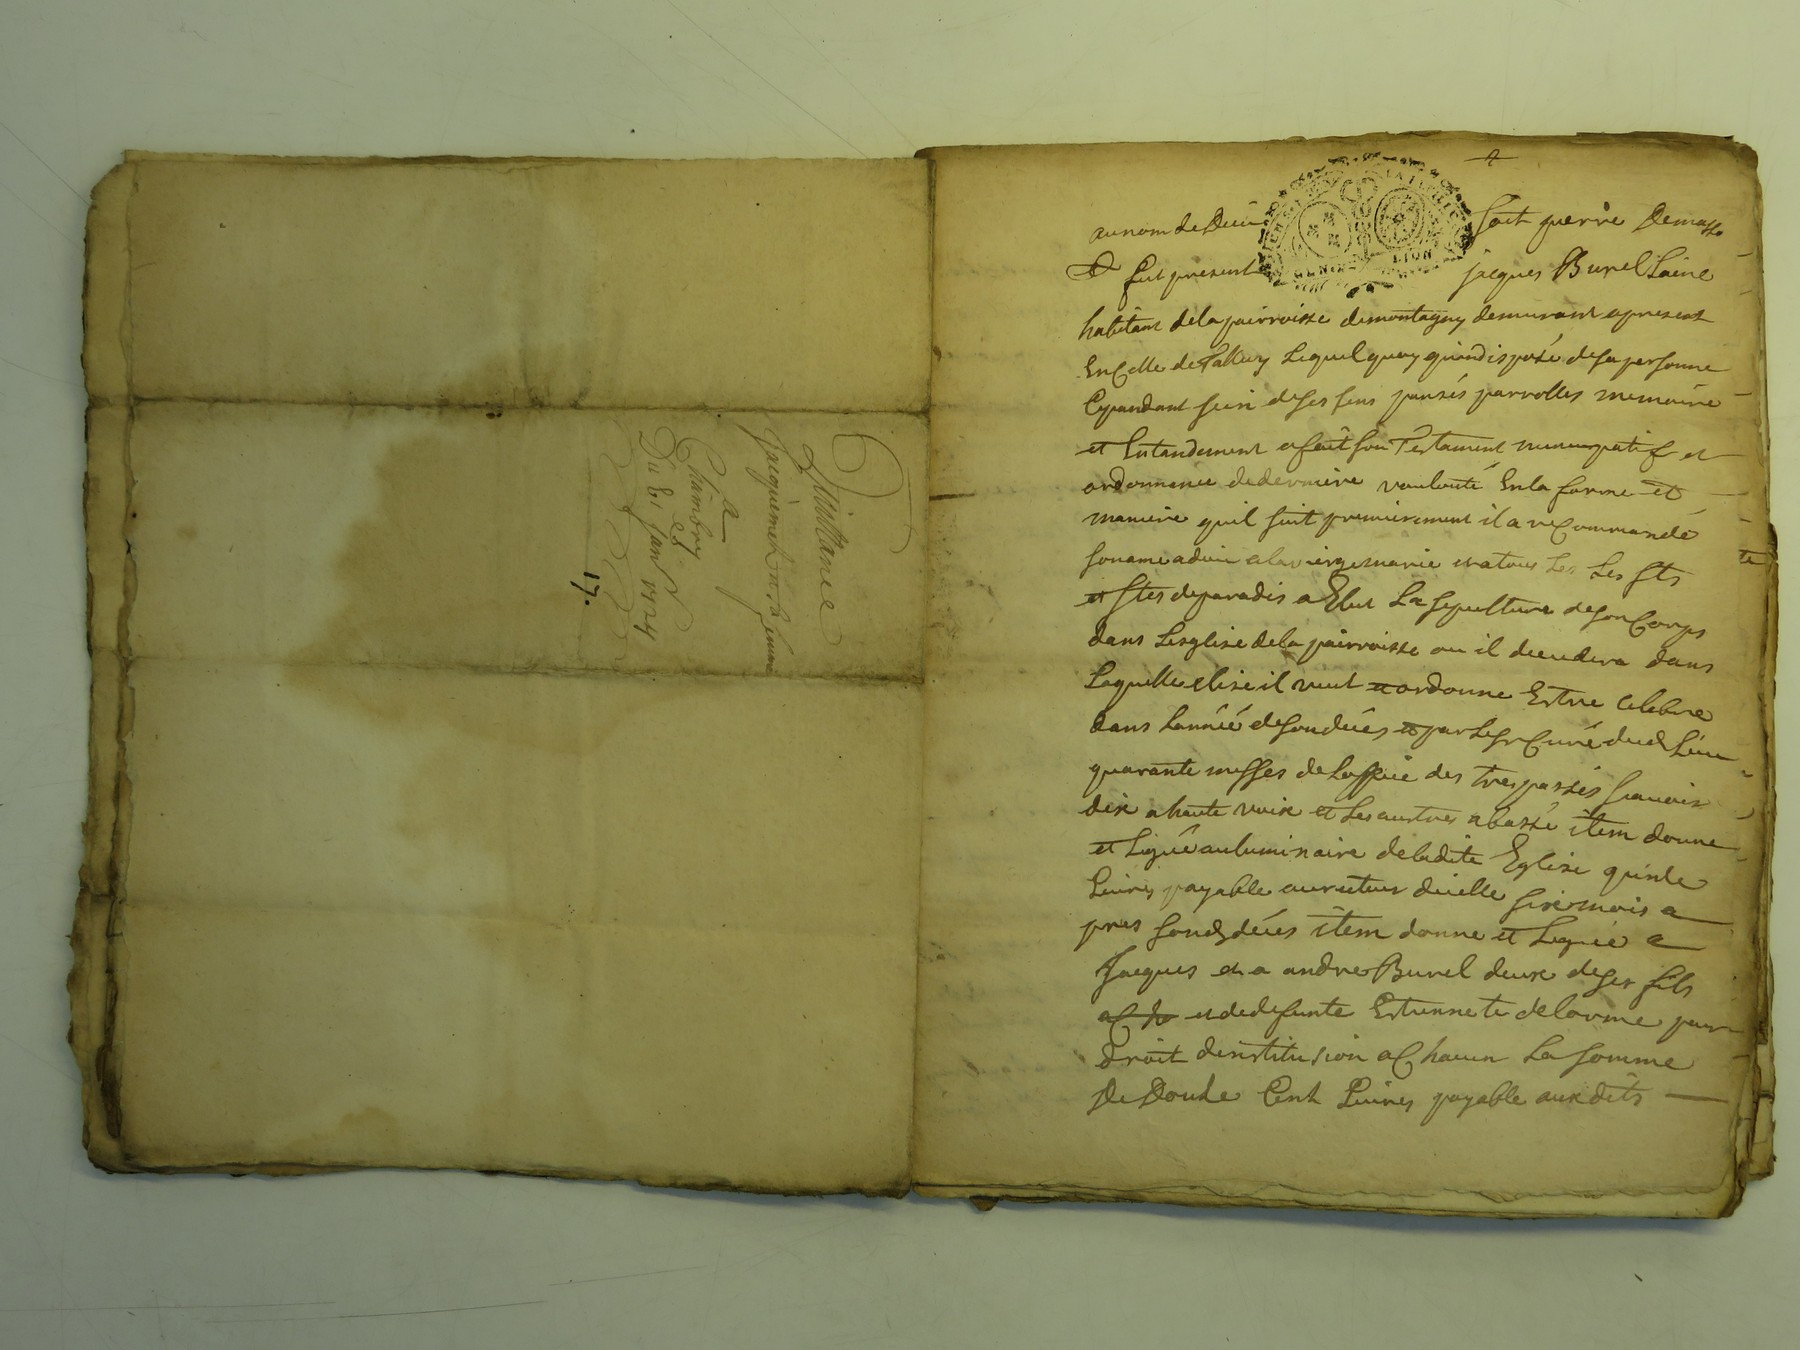 Quittance
Jacquemet
a
Chambry
Du 8e Janv 1724
17.
au nom de Dieu soit
fut present jacques Burel Laine
habitant de la pairroisse de montagny demurant apresent
En Celle de Talluy Lequel quoy quindisposé de sa personne
Cepandant sein de ses sens pansés parrolles memoire
et Entandement a fait son Testament nuncupatif et
ordonnance de derniere voulonté En la forme et
maniere quil suit premierement il a reCommandé
son ame a dieu a la vierge marie et a tous Les Les sts
et stes de paradis a Elut La sepulture de son Corps
dans Lesglise de la pairroisse ou il decedera dans
Laquelle elise il veut et ordonne Estre Celebre
dans Lannéé de son decés et par Le sr Curé dud Lieu
quarante messes de Loffice des trespassés scauoir
dix a haute voix et Les austres a basse item donne
et Legue au luminaire de ladite Eglise quinse
Liures payable au recteur dicelle six mois a
pres sond decés item donne et Legue a
Jacques et a andre Burel deux de ses fils
et de defunte Estiennete delorme par
droit dinstitusion a Chacun La somme
De Douse Cent Liures payable auxdits